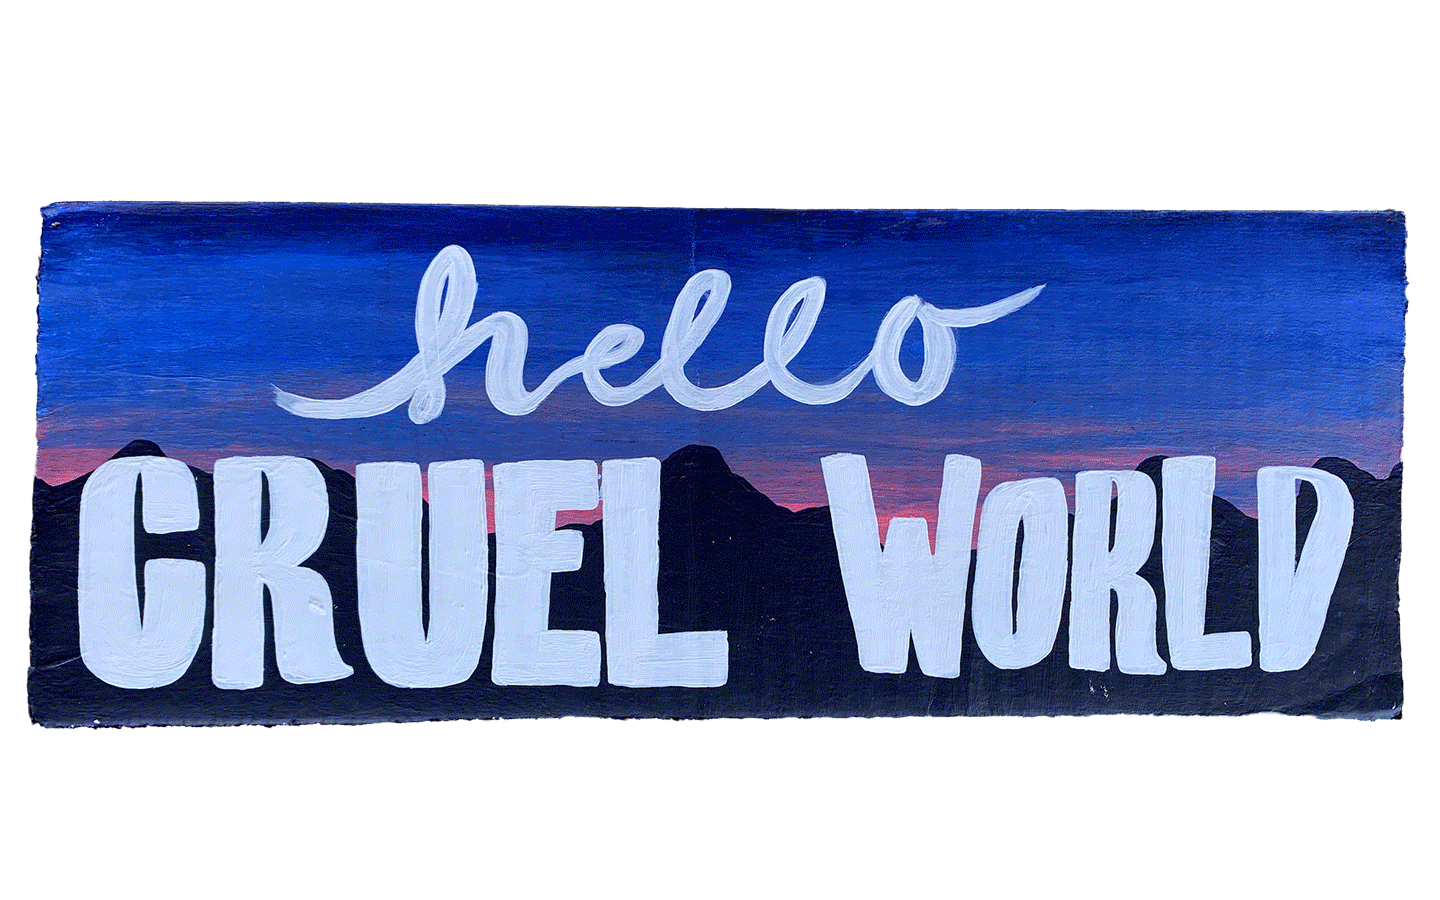 hello
CRUEL WORLD